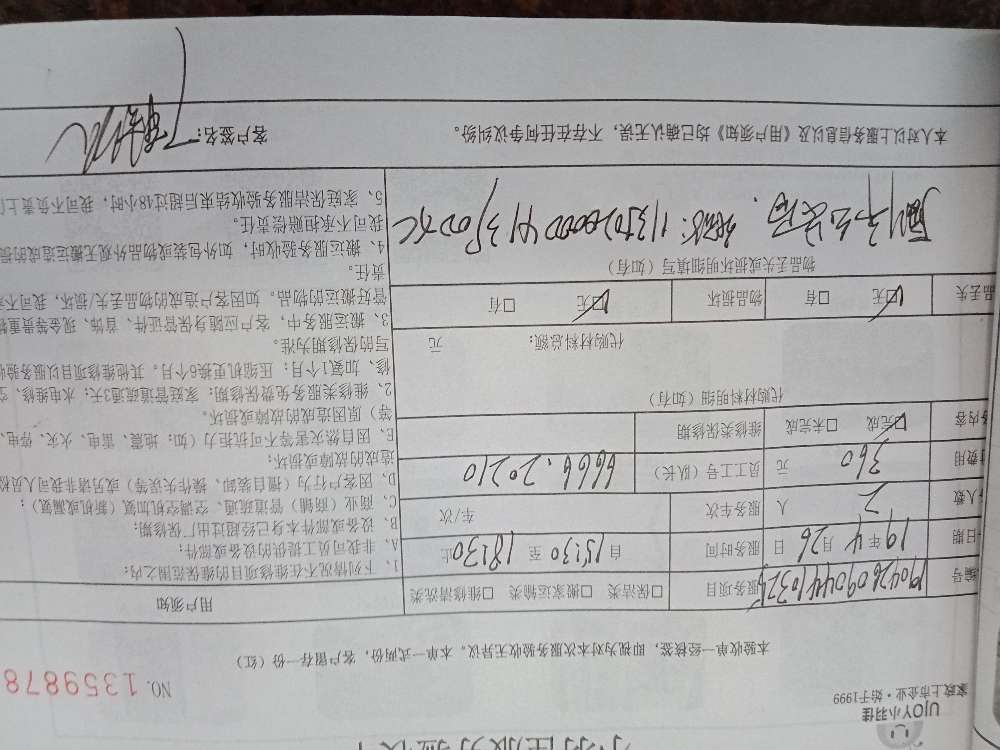 UJOY小羽佳
家政上市企业·始于1999
NO. 1359878
本验收单一经核签，即视为对本次服务验收无异议。本单一式两份，客户留存一份（红）
编号
服务项目 □保洁类 □搬家运输类 □维修清洗类
日期 19年4月26日 服务时间 自 15:30 至 18:30 止
人数 2 人 服务车次 车/次
费用 360 元 员工工号（队长） 6666.20210
务内容 ☑完成 □未完成 维修类保修期
代购材料明细（如有）
代购材料总额： 元
品丢失 ☑无 □有 物品损坏 ☑无 □有
物品丢失或损坏明细填写（如有）
用户须知
1、下列情况不在维修项目的维保范围之内：
A、非我司员工提供的设备或部件；
B、设备或部件本身已经超过出厂保修期；
C、商业（商铺）管道疏通、空调空机加氨（新机或漏氨）；
D、因客户行为（擅自装卸、操作失误等）或另请非我司人员检
造成的故障或损坏；
E、因自然灾害等不可抗拒力（如：地震、雷电、火灾、停电、
等）原因造成的故障或损坏。
2、维修类服务免费保修期：家庭管道疏通3天；水电维修、空
修、加氨1个月；压缩机更换6个月。其他维修项目以服务验收
写的保修期为准。
3、搬运服务中，客户应随身保管证件、首饰、现金等贵重物
管好搬运的物品。如因客户造成的物品丢失/损坏，我司不承
责任。
4、搬运服务验收时，如外包装或物品外观无搬运造成的损
我司不承担赔偿责任。
5、家庭保洁服务验收结束后超过48小时，我司不负责上门
本人对以上服务信息以及《用户须知》均已确认无误，不存在任何争议纠纷。
客户签名：